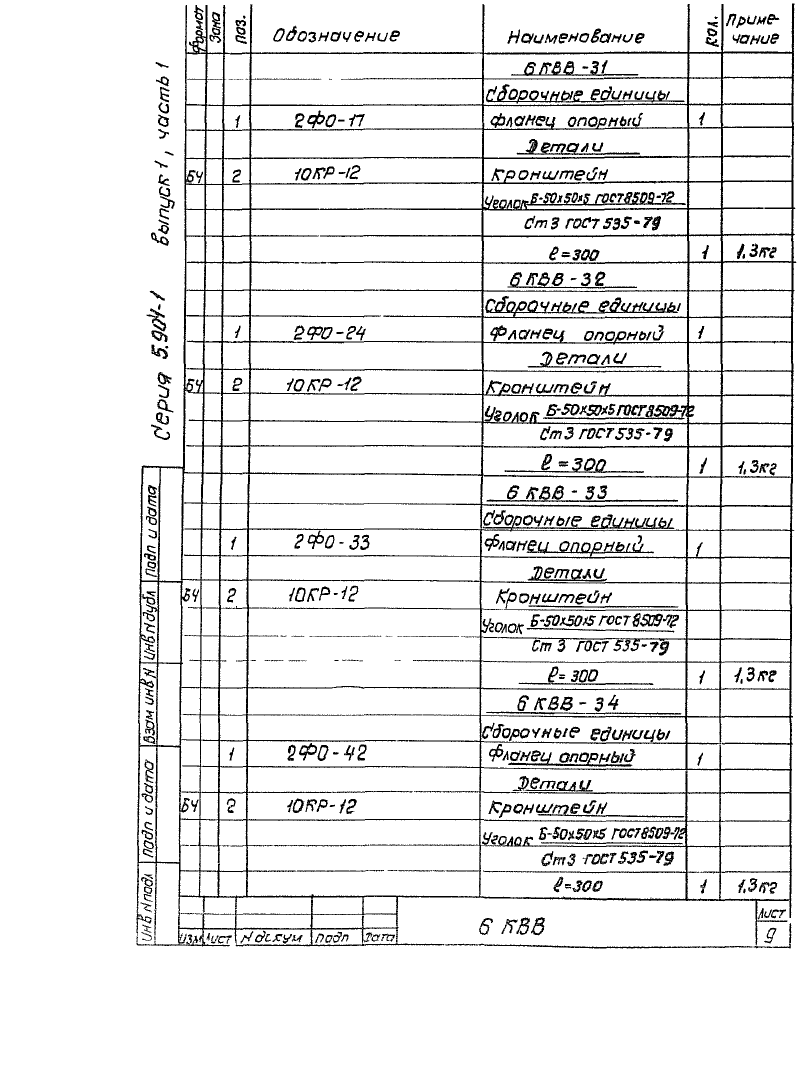 Серия 5.904-1 Выпуск 1, часть 1
Формат Зона Поз. Обозначение Наименование Кол. Приме-
чание
6 КВВ-31
Сборочные единицы
1 2ФО-17 Фланец опорный 1
Детали
БЧ 2 10КР-12 Кронштейн
Уголок Б-50х50х5 ГОСТ 8509-72
Ст 3 ГОСТ 535-79
l=300 1 1,3кг
6 КВВ-32
Сборочные единицы
1 2ФО-24 Фланец опорный 1
Детали
БЧ 2 10КР-12 Кронштейн
Уголок Б-50х50х5 ГОСТ 8509-72
Ст 3 ГОСТ 535-79
l=300 1 1,3кг
6 КВВ-33
Сборочные единицы
1 2ФО-33 Фланец опорный 1
Детали
БЧ 2 10КР-12 Кронштейн
Уголок Б-50х50х5 ГОСТ 8509-72
Ст 3 ГОСТ 535-79
l=300 1 1,3кг
6 КВВ-34
Сборочные единицы
1 2ФО-42 Фланец опорный 1
Детали
БЧ 2 10КР-12 Кронштейн
Уголок Б-50х50х5 ГОСТ 8509-72
Ст 3 ГОСТ 535-79
l=300 1 1,3кг
Изм Лист N докум Подп Дата
6 КВВ
Лист
9
Инв N подл
Подп и дата
Взам инв N
Инв N дубл
Подп и дата